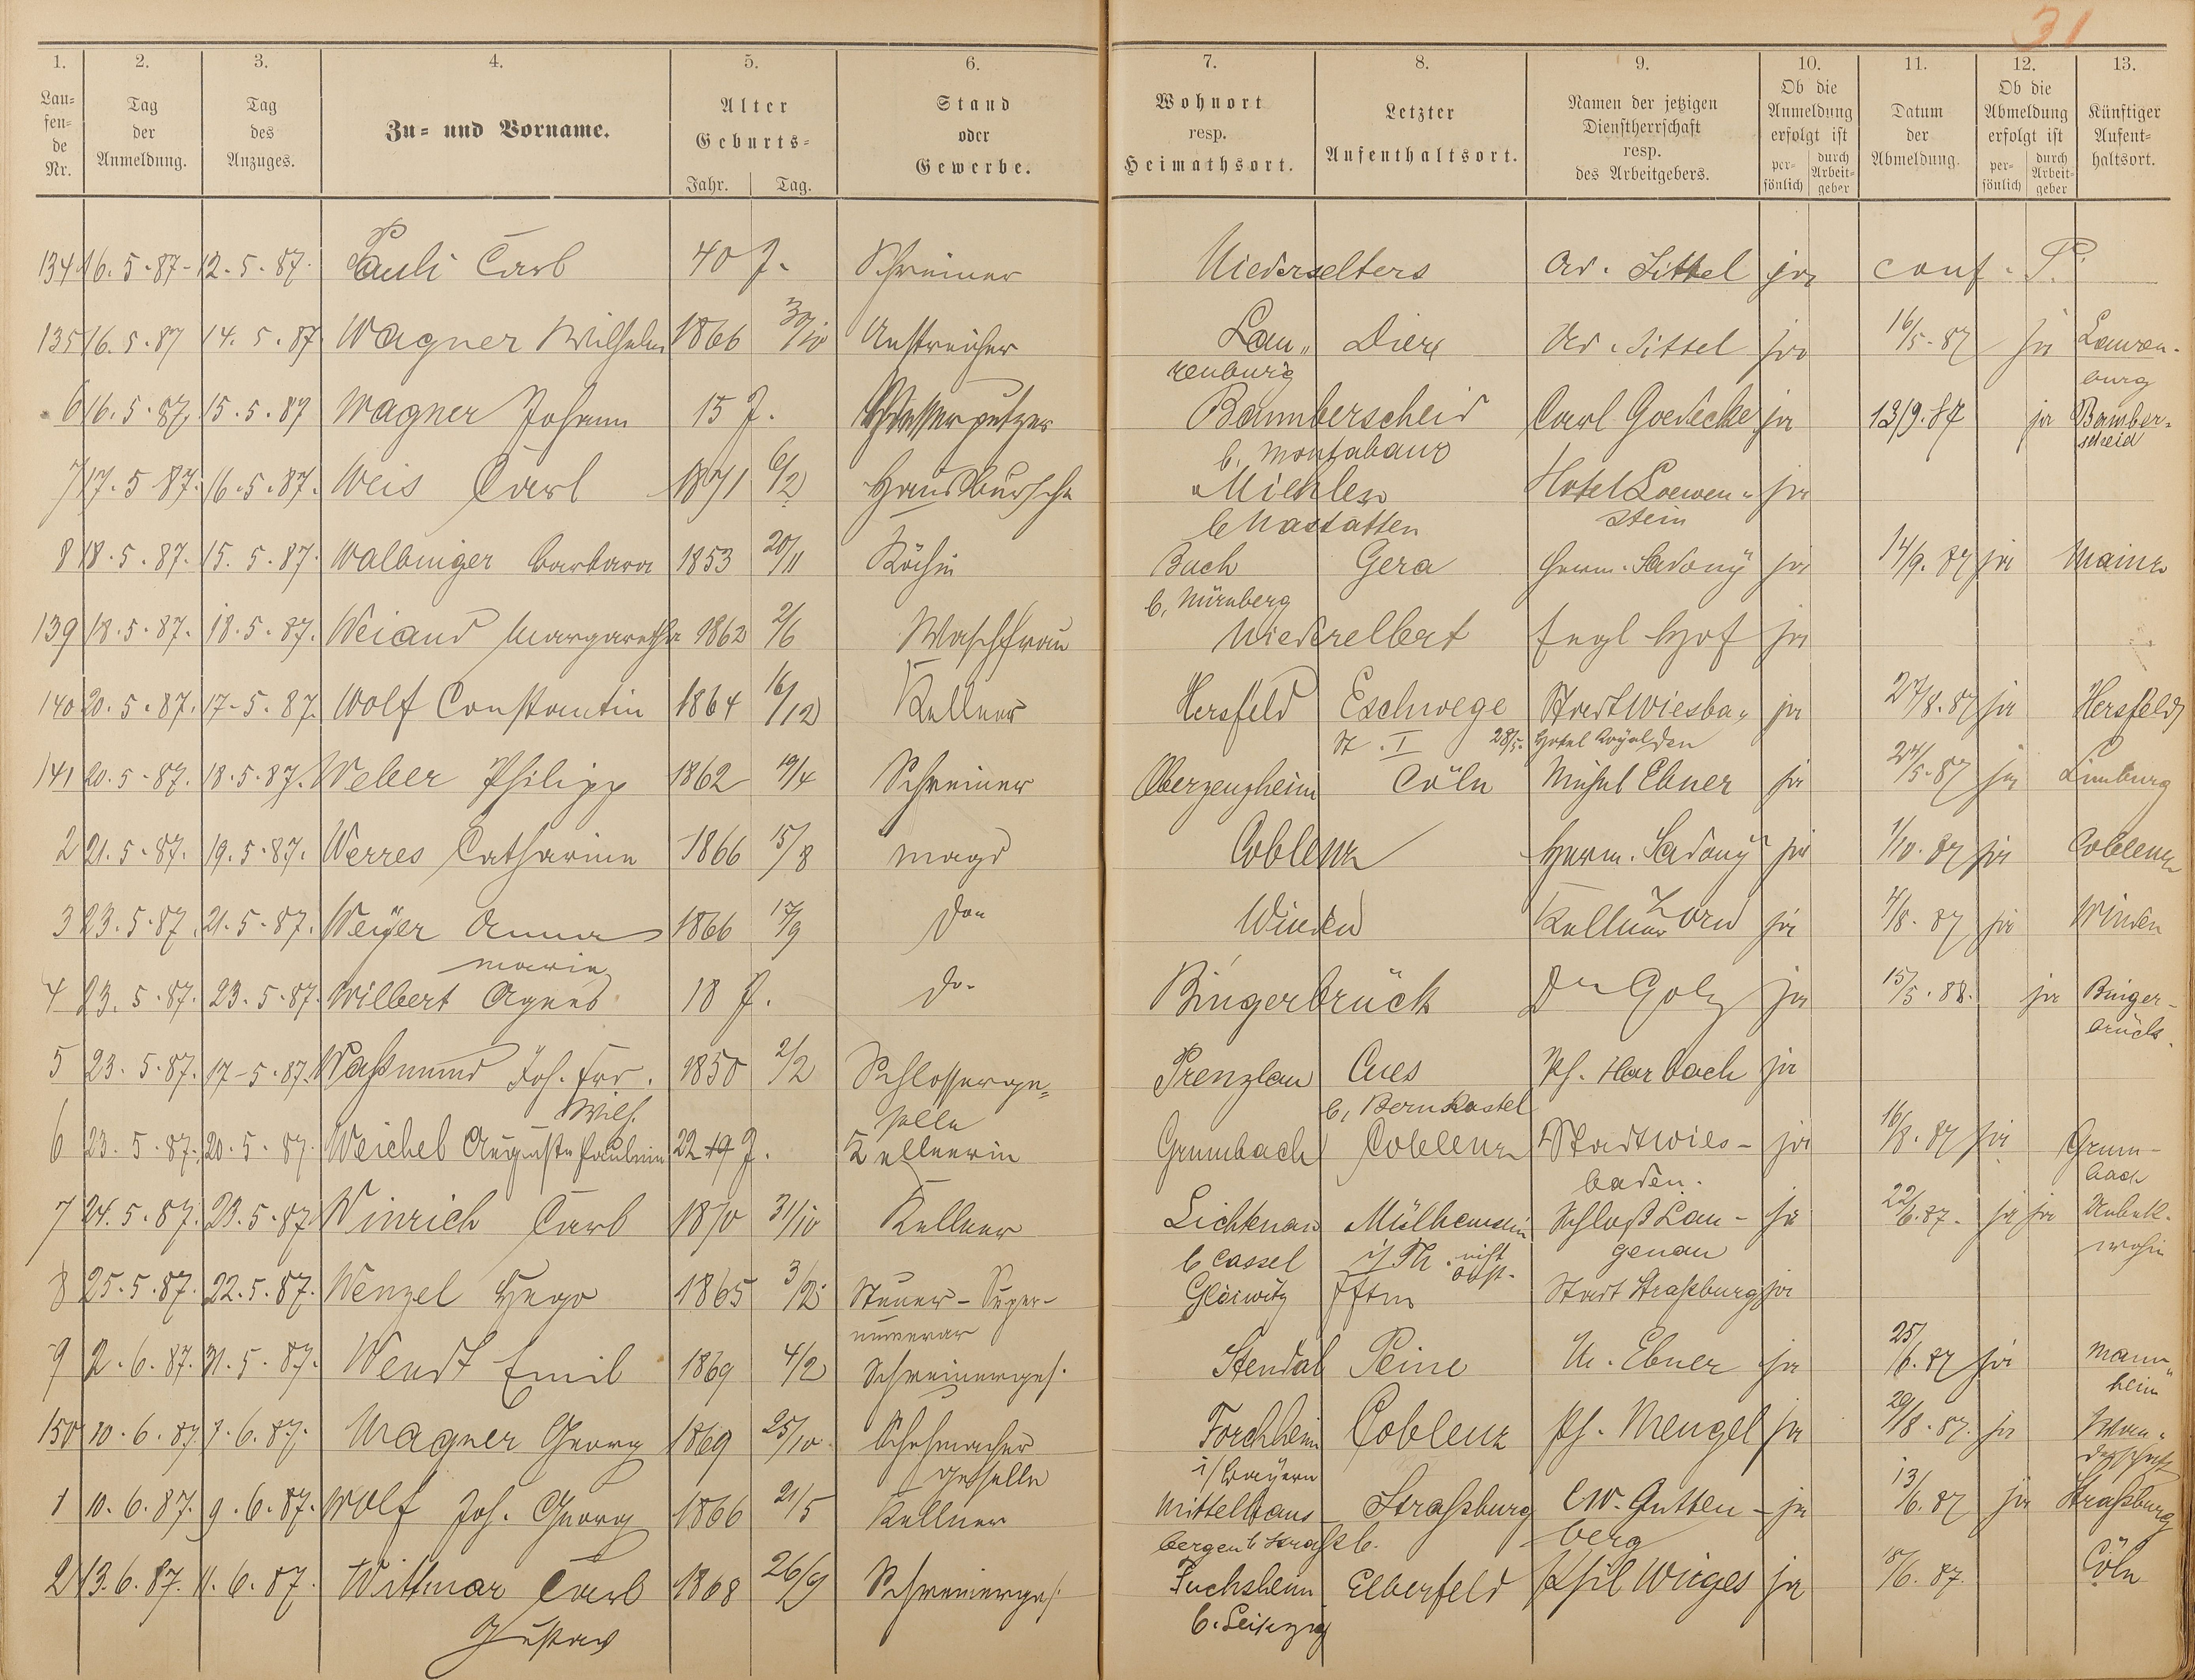 31
1. 2. 3. 4. 5. 6. 7. 8. 9. 10. 11. 12. 13.
Lau-fen-de Nr. Tag der Anmeldung. Tag des Anzuges. Zu- und Vorname. Alter Geburts- Jahr. Tag. Stand oder Gewerbe. Wohnort resp. Heimathsort. Letzter Aufenthaltsort. Namen der jetzigen Dienstherrschaft resp. des Arbeitgebers. Ob die Anmeldung erfolgt ist per-sönlich durch Arbeit-geber Datum der Abmeldung. Ob die Abmeldung erfolgt ist per-sönlich durch Arbeit-geber Künftiger Aufent-haltsort.
134 16.5.87- 12.5.87. Pauli Carl 40 J. Schreiner Niederselters Ad. Sittel ja conf. P.
135 16.5.87 14.5.87 Wagner Wilhelm 1866 30/10 Anstreicher Lau„ Diez Ad. Sittel ja 16/5.87 ja Lauren-
renburg burg
6 16.5.87. 15.5.87 Wagner Johann 15 J. Bannberscheid Carl Goedecke ja 13/9.87 ja Bamber-
b. Montabaur scheid
7 17.5.87. 16.5.87. Weis Carl 1871 6/2 Hausbursche Miehlen Hotel Loewen- ja
b Nastätten stein
8 18.5.87. 15.5.87. Walbinger Barbara 1853 20/11 Köchin Buch Gera Herm. Sadony ja 14/9.87 ja Mainz
b. Nürnberg
139 18.5.87. 18.5.87. Weiand Margarethe 1862 2/6 Waschfrau Niederelbert Engl Hof ja
140 20.5.87. 17-5.87. Wolf Constantin 1864 16/12 Kellner Hersfeld Eschwege Stadt Wiesba„ ja 27/8.87 ja Hersfeld
St. I 28/5. Hotel Royal den
141 20.5.87. 18.5.87. Weber Philipp 1862 19/4 Schreiner Oberzeuzheim Cöln Michel Ebner ja 24/5.87 ja Limburg
2 21.5.87. 19.5.87. Werres Catharina 1866 15/8 Magd Coblenz Herm. Sadony ja 1/10.87 ja Coblenz
3 23.5.87. 21.5.87. Weyer Anna 1866 17/9 do Winden Kellner Zorn ja 4/8.87 ja Winden
Maria
4 23.5.87. 23.5.87. Wilbert Agnes 18 J. do. Bingerbrück Dr Golz ja 15/5.88. ja Binger-
brück.
5 23.5.87. 17-5.87. Waßmund Joh. Frd. 1850 2/2 Schlosserge- Prenzlau Cues Ph. Harbach ja
Wilh. selle b. Bernkastel
6 23.5.87. 20.5.87. Weichel Auguste Pauline 22 19 J. Kellnerin Grumbach Coblenz Stadt Wies- ja 16/8.87 ja Grum-
baden. bach
7 24.5.87. 23.5.87. Winrich Carl 1870 31/10 Kellner Lichtenau Mülhausen Schloß Lan- ja 22/6.87. ja ja Unbek.
b Cassel i/Th. genau wohin
8 25.5.87. 22.5.87. Wenzel Hugo 1865 3/12 Steuer-Super- Gleiwitz Stadt Straßburg ja
numerar
9 2.6.87. 31.5.87. Wendt Emil 1869 4/2 Schreinerges. Stendal Peine M. Ebner ja 25/6.87 ja Mann„
heim
150 10.6.87. 7.6.87. Wagner Georg 1869 25/10 Schuhmacher Forchheim Coblenz Ph. Mengel ja 29/8.87. ja Wan-
geselle i/Bayern derschaft
1 10.6.87. 9.6.87. Wolf Joh. Georg 1866 21/5 Kellner Mittelhaus- Straßburg CW. Gutten- ja 13/6.87 ja Straßburg
bergen b Straßb. berg
2 13.6.87. 11.6.87. Wittmar Carl 1868 26/9 Schreinerges. Fuchsheim Elberfeld Phil Wirges ja 18/6.87. Cöln
Gustav b. Leipzig